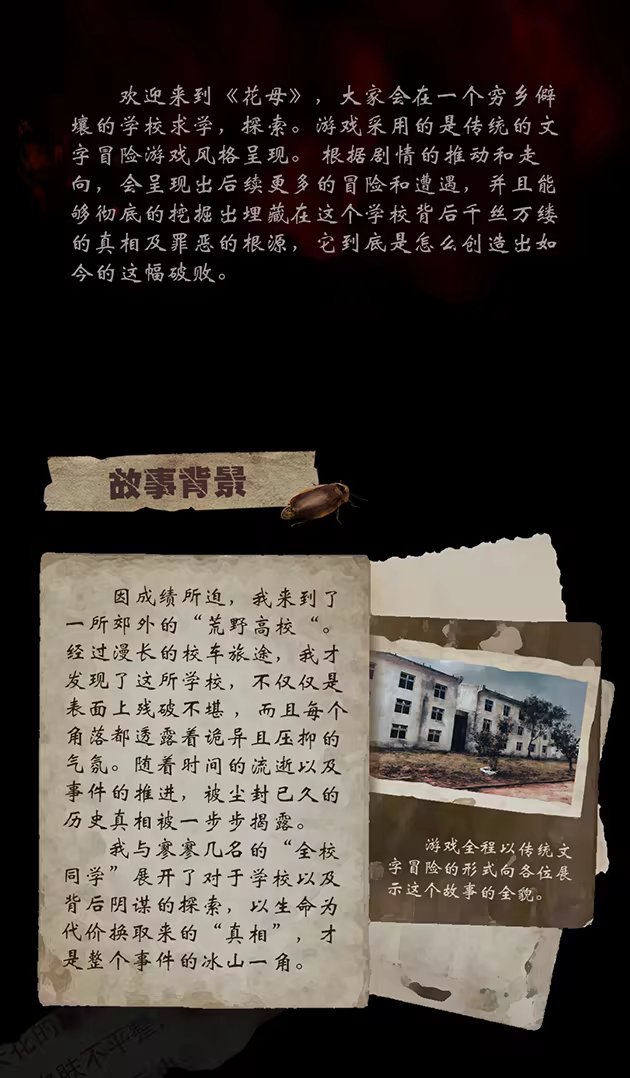 欢迎来到《花母》，大家会在一个穷乡僻
壤的学校求学，探索。游戏采用的是传统的文
字冒险游戏风格呈现。 根据剧情的推动和走
向，会呈现出后续更多的冒险和遭遇，并且能
够彻底的挖掘出埋藏在这个学校背后千丝万缕
的真相及罪恶的根源，它到底是怎么创造出如
今的这幅破败。
故事背景
因成绩所迫，我来到了
一所郊外的“荒野高校“。
经过漫长的校车旅途，我才
发现了这所学校，不仅仅是
表面上残破不堪，而且每个
角落都透露着诡异且压抑的
气氛。随着时间的流逝以及
事件的推进，被尘封已久的
历史真相被一步步揭露。
我与寥寥几名的“全校
同学”展开了对于学校以及
背后阴谋的探索，以生命为
代价换取来的“真相”，才
是整个事件的冰山一角。
游戏全程以传统文
字冒险的形式向各位展
示这个故事的全貌。
肤不平整，